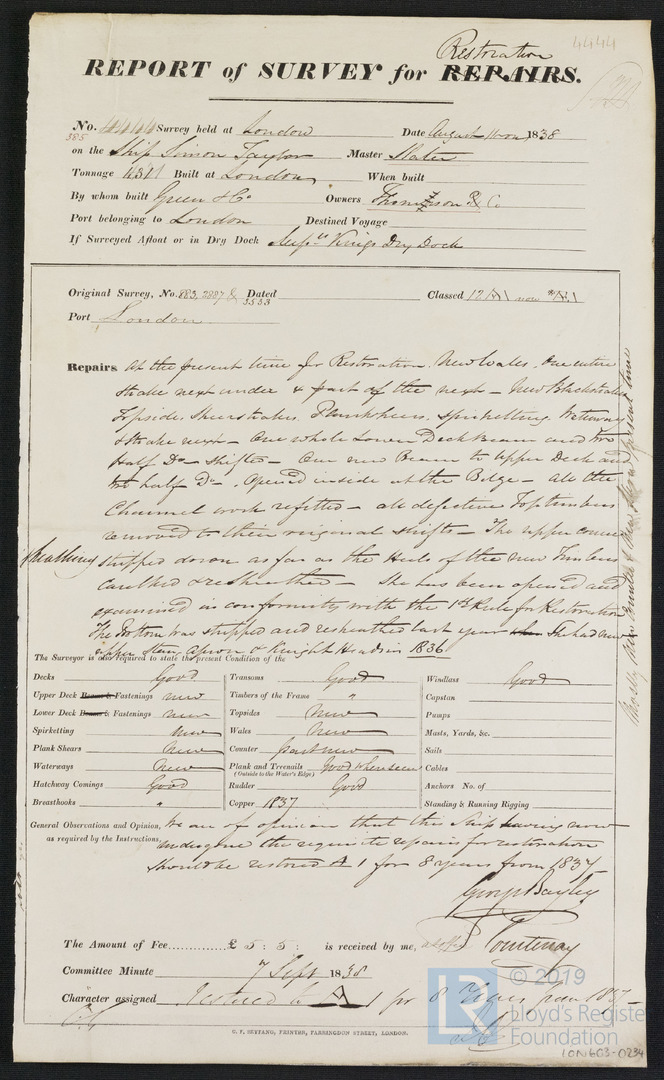 4444
Restoration
REPORT of SURVEY for REPAIRS.
No. 4444 Survey held at London Date August 1838
585
on the Ship Simon Taylor Master Slater
Tonnage 431 Built at London When built
By whom built Green & Co Owners Thomson & Co
Port belonging to London Destined Voyage
If Surveyed Afloat or in Dry Dock Kings Dry Dock
Original Survey, No. 883. 2887 & 3553 Dated Classed 12 A1 now
Port London
Repairs At the present time for Restoration. New Wales, One entire
Strake next under & part of the next – New Blackstrakes
Topsides, Sheerstrakes. Planksheers, Spirketting, Waterways
& Strake next – One whole Lower Deck Beam and two
half Do shifted – One new Beam to Upper Deck and
two half Do. Opened inside at the Bilge – All the
Channel work refitted – all defective Toptimbers
removed to their original shifts – The upper courses
Sheathing stripped down as far as the Heels of the new Timbers
Caulked & resheathed – She has been opened and
examined in conformity with the 1st Rule for Restoration
The Bottom was stripped and resheathed last year She had new
upper Stem, apron & Knight Heads in 1836
present time
The Surveyor is also required to state the present Condition of the
Decks Good Transoms Good Windlass Good
Upper Deck Beams & Fastenings new Timbers of the Frame " Capstan
Lower Deck Beams & Fastenings new Topsides New Pumps
Spirketting new Wales New Masts, Yards, &c.
Plank Shears New Counter part new Sails
Waterways New Plank and Treenails Good where seen Cables
(Outside to the Water's Edge)
Hatchway Comings Good Rudder Good Anchors No. of
Breasthooks " Copper 1837 Standing & Running Rigging
General Observations and Opinion, We are of opinion that this Ship having now
as required by the Instructions, undergone the requisite repairs for restoration
should be restored A 1 for 8 years from 1837
George Bayley
The Amount of Fee £ 5 : 5 : is received by me, Courtenay
Committee Minute 7 Sept 1838
Character assigned Restored to A 1 for 8 Years from 1837
C. F. SEYFANG, PRINTER, FARRINGDON STREET, LONDON.
LR © 2019
Lloyd's Register
Foundation
LON603-0234